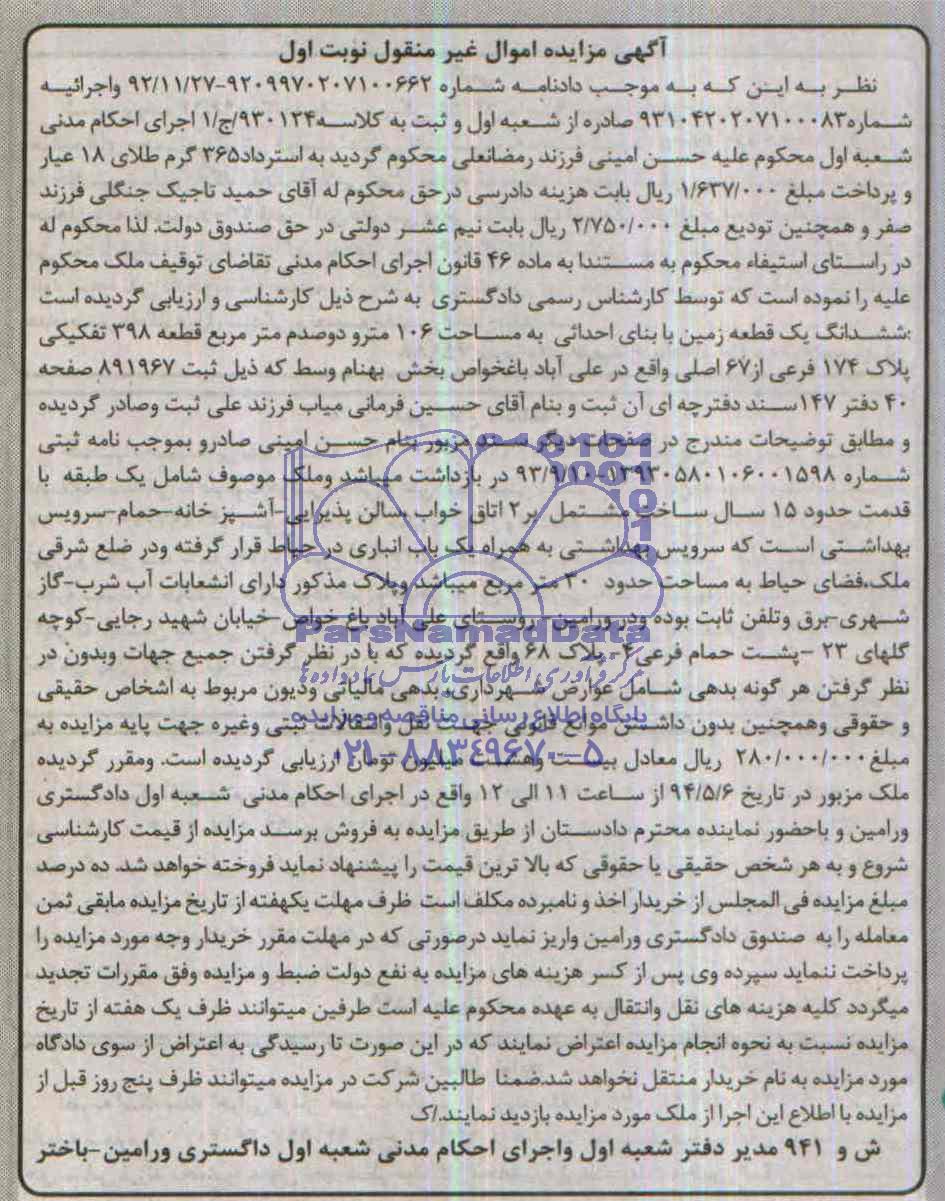 آگهی مزایده اموال غیر منقول نوبت اول
نظر به این که به موجب دادنامه شماره ۹۲۰۹۹۷۰۲۰۷۱۰۰۶۶۲-۹۲/۱۱/۲۷ واجرائیه
شماره۹۳۱۰۴۲۰۲۰۷۱۰۰۰۸۳ صادره از شعبه اول و ثبت به کلاسه۹۳۰۱۲۴/ج/۱ اجرای احکام مدنی
شعبه اول محکوم علیه حسن امینی فرزند رمضانعلی محکوم گردید به استرداد۳۶۵ گرم طلای ۱۸ عیار
و پرداخت مبلغ ۱/۶۳۷/۰۰۰ ریال بابت هزینه دادرسی درحق محکوم له آقای حمید تاجیک جنگلی فرزند
صفر و همچنین تودیع مبلغ ۲/۷۵۰/۰۰۰ ریال بابت نیم عشر دولتی در حق صندوق دولت. لذا محکوم له
در راستای استیفاء محکوم به مستندا به ماده ۴۶ قانون اجرای احکام مدنی تقاضای توقیف ملک محکوم
علیه را نموده است که توسط کارشناس رسمی دادگستری به شرح ذیل کارشناسی و ارزیابی گردیده است
:ششدانگ یک قطعه زمین با بنای احداثی به مساحت ۱۰۶ مترو دوصدم متر مربع قطعه ۳۹۸ تفکیکی
پلاک ۱۷۴ فرعی از۶۷ اصلی واقع در علی آباد باغخواص بخش بهنام وسط که ذیل ثبت ۸۹۱۹۶۷ صفحه
۴۰ دفتر ۱۴۷سند دفترچه ای آن ثبت و بنام آقای حسین فرمانی میاب فرزند علی ثبت وصادر گردیده
و مطابق توضیحات مندرج در صفحات دیگر سند مزبور بنام حسن امینی صادرو بموجب نامه ثبتی
شماره ۱۳۹۳۰۵۸۰۱۰۶۰۰۱۵۹۸-۹۳/۹/۱۰ در بازداشت میباشد وملک موصوف شامل یک طبقه با
قدمت حدود ۱۵ سال ساخت مشتمل بر۲ اتاق خواب سالن پذیرایی-آشپز خانه-حمام-سرویس
بهداشتی است که سرویس بهداشتی به همراه یک باب انباری در حیاط قرار گرفته ودر ضلع شرقی
ملک،فضای حیاط به مساحت حدود ۳۰ متر مربع میباشد وپلاک مذکور دارای انشعابات آب شرب-گاز
شهری-برق وتلفن ثابت بوده ودر ورامین -روستای علی آباد باغ خواص-خیابان شهید رجایی-کوچه
گلهای ۲۳ -پشت حمام فرعی۴- پلاک ۶۸ واقع گردیده که با در نظر گرفتن جمیع جهات وبدون در
نظر گرفتن هر گونه بدهی شامل عوارض شهرداری،بدهی مالیاتی ودیون مربوط به اشخاص حقیقی
و حقوقی وهمچنین بدون داشتن موانع قانونی جهت نقل وانتقالات ثبتی وغیره جهت پایه مزایده به
مبلغ۲۸۰/۰۰۰/۰۰۰ ریال معادل بیست وهشت میلیون تومان ارزیابی گردیده است. ومقرر گردیده
ملک مزبور در تاریخ ۹۴/۵/۶ از ساعت ۱۱ الی ۱۲ واقع در اجرای احکام مدنی شعبه اول دادگستری
ورامین و باحضور نماینده محترم دادستان از طریق مزایده به فروش برسد مزایده از قیمت کارشناسی
شروع و به هر شخص حقیقی یا حقوقی که بالا ترین قیمت را پیشنهاد نماید فروخته خواهد شد. ده درصد
مبلغ مزایده فی المجلس از خریدار اخذ و نامبرده مکلف است ظرف مهلت یکهفته از تاریخ مزایده مابقی ثمن
معامله را به صندوق دادگستری ورامین واریز نماید درصورتی که در مهلت مقرر خریدار وجه مورد مزایده را
پرداخت ننماید سپرده وی پس از کسر هزینه های مزایده به نفع دولت ضبط و مزایده وفق مقررات تجدید
میگردد کلیه هزینه های نقل وانتقال به عهده محکوم علیه است طرفین میتوانند ظرف یک هفته از تاریخ
مزایده نسبت به نحوه انجام مزایده اعتراض نمایند که در این صورت تا رسیدگی به اعتراض از سوی دادگاه
مورد مزایده به نام خریدار منتقل نخواهد شد.ضمنا طالبین شرکت در مزایده میتوانند ظرف پنج روز قبل از
مزایده با اطلاع این اجرا از ملک مورد مزایده بازدید نمایند./ک
ش و ۹۴۱ مدیر دفتر شعبه اول واجرای احکام مدنی شعبه اول داگستری ورامین-باختر
ParsNamadData
مرکز فرآوری اطلاعات پارس نماد داده ها
پایگاه اطلاع رسانی مناقصه و مزایده
۰۲۱-۸۸۳۴۹۶۷۰-۵